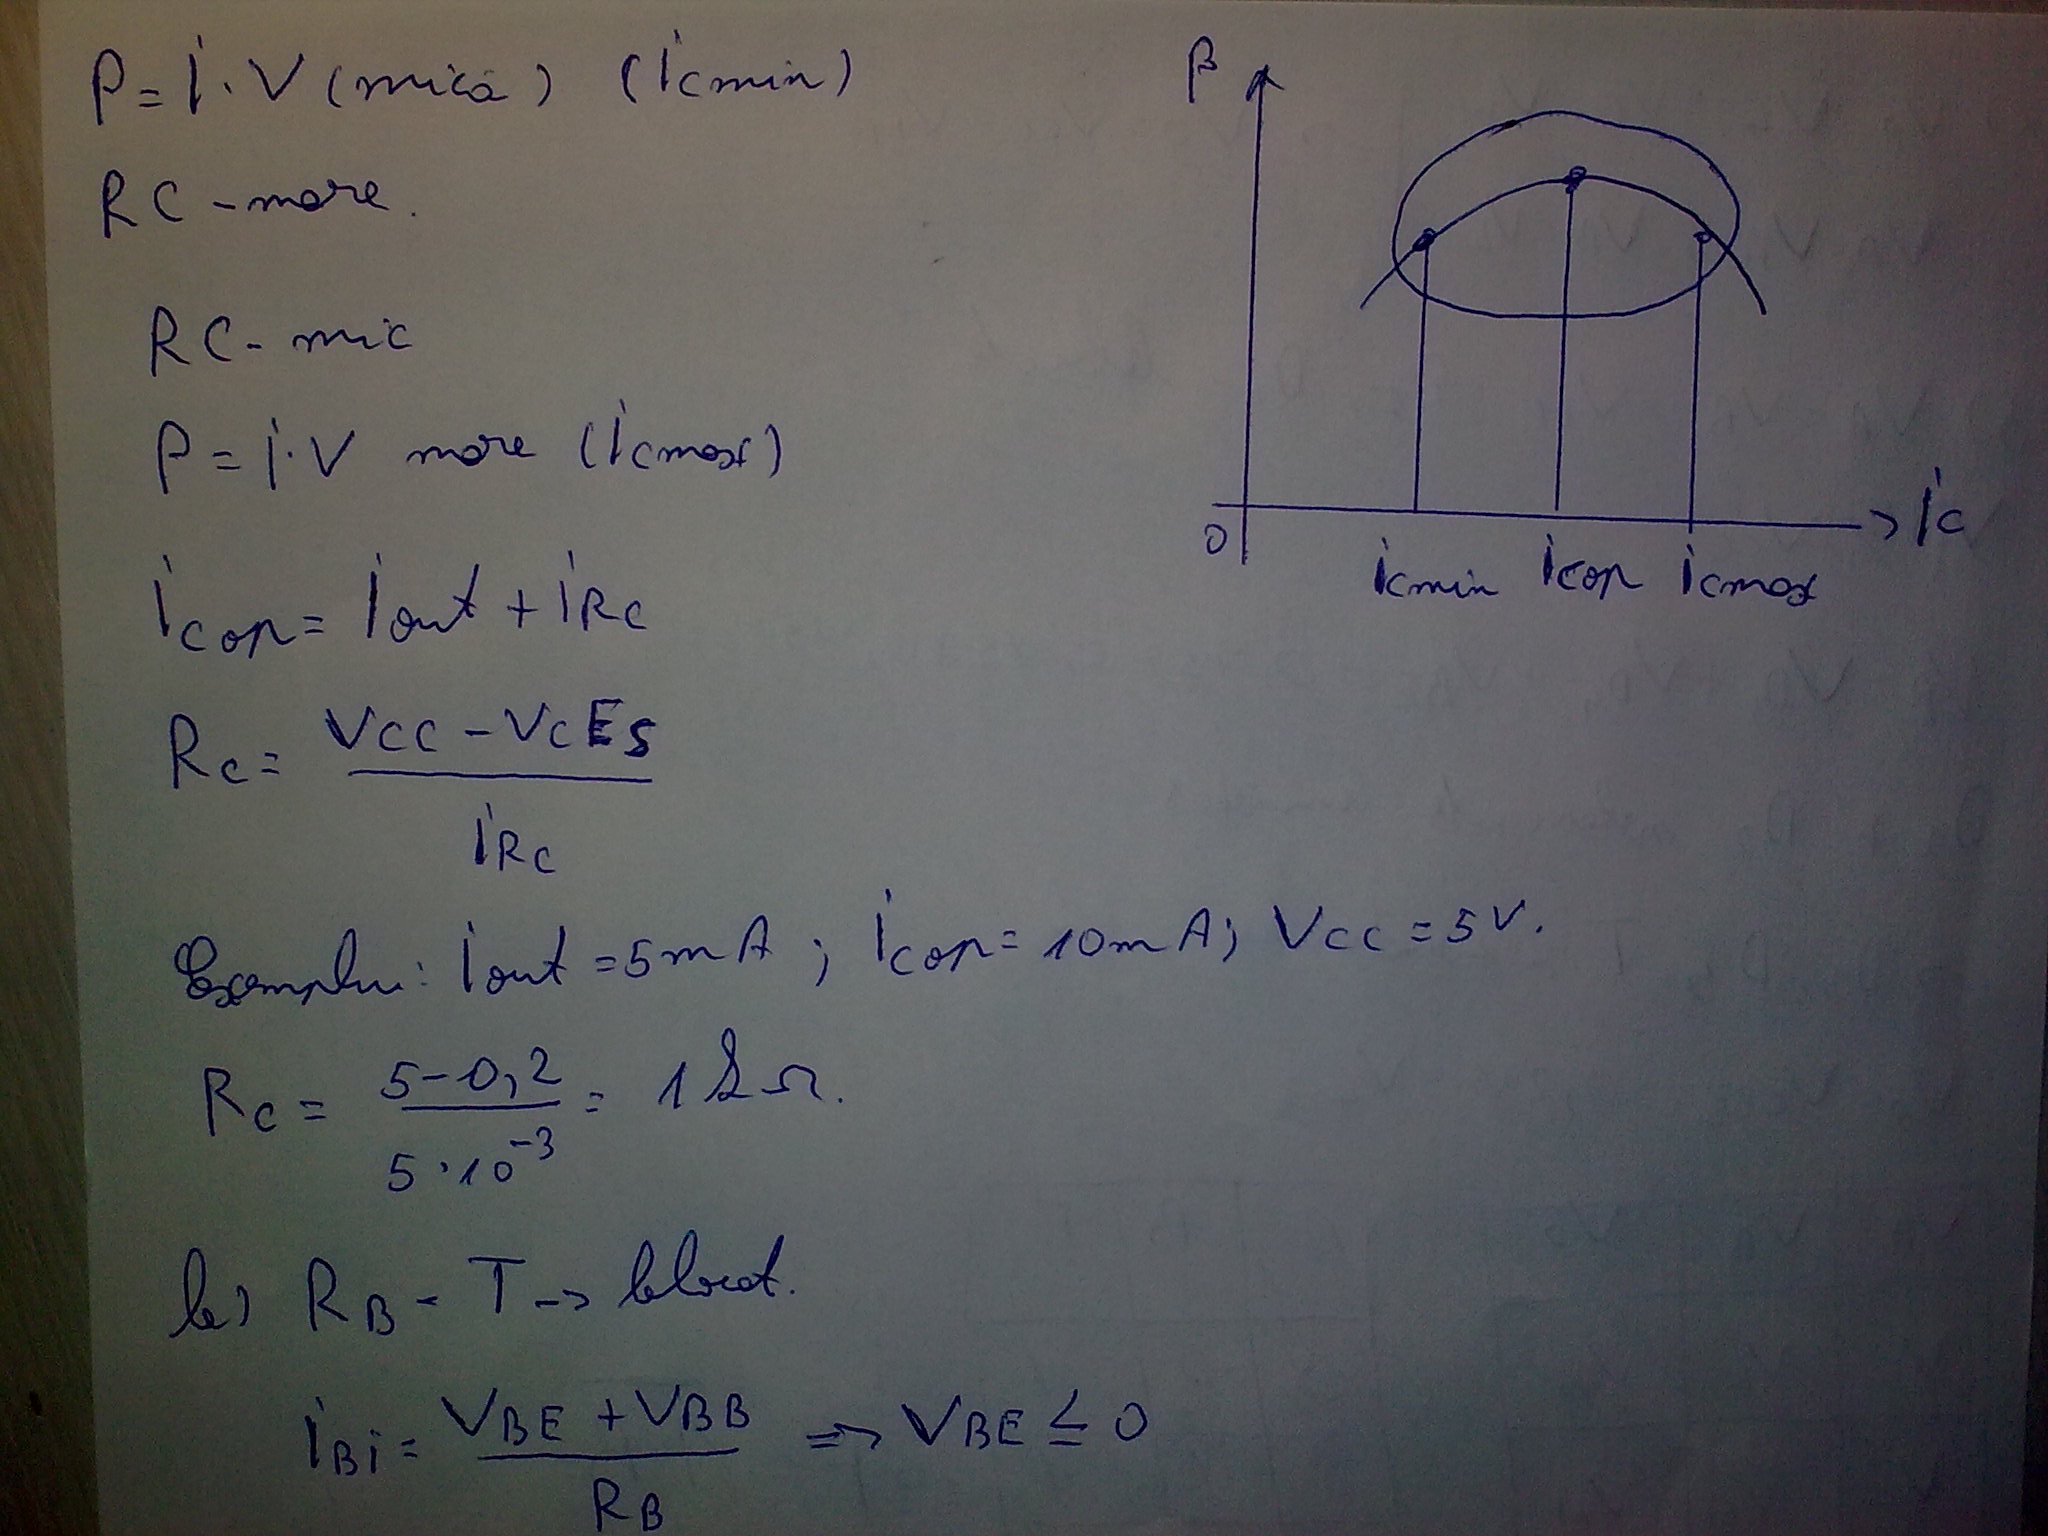 P = i · V (mică) (icmin)
RC - mare.
RC - mic
P = i · V mare (icmax)
icop = iout + iRC
Rc = VCC - VCEs
iRC
Exemplu: iout = 5mA ; icop = 10mA; VCC = 5V.
RC = 5-0,2 = 1kΩ.
5·10⁻³
b) RB - T -> blocat.
iBi = VBE + VBB => VBE ≤ 0
RB
β
0
icmin icop icmax
ic